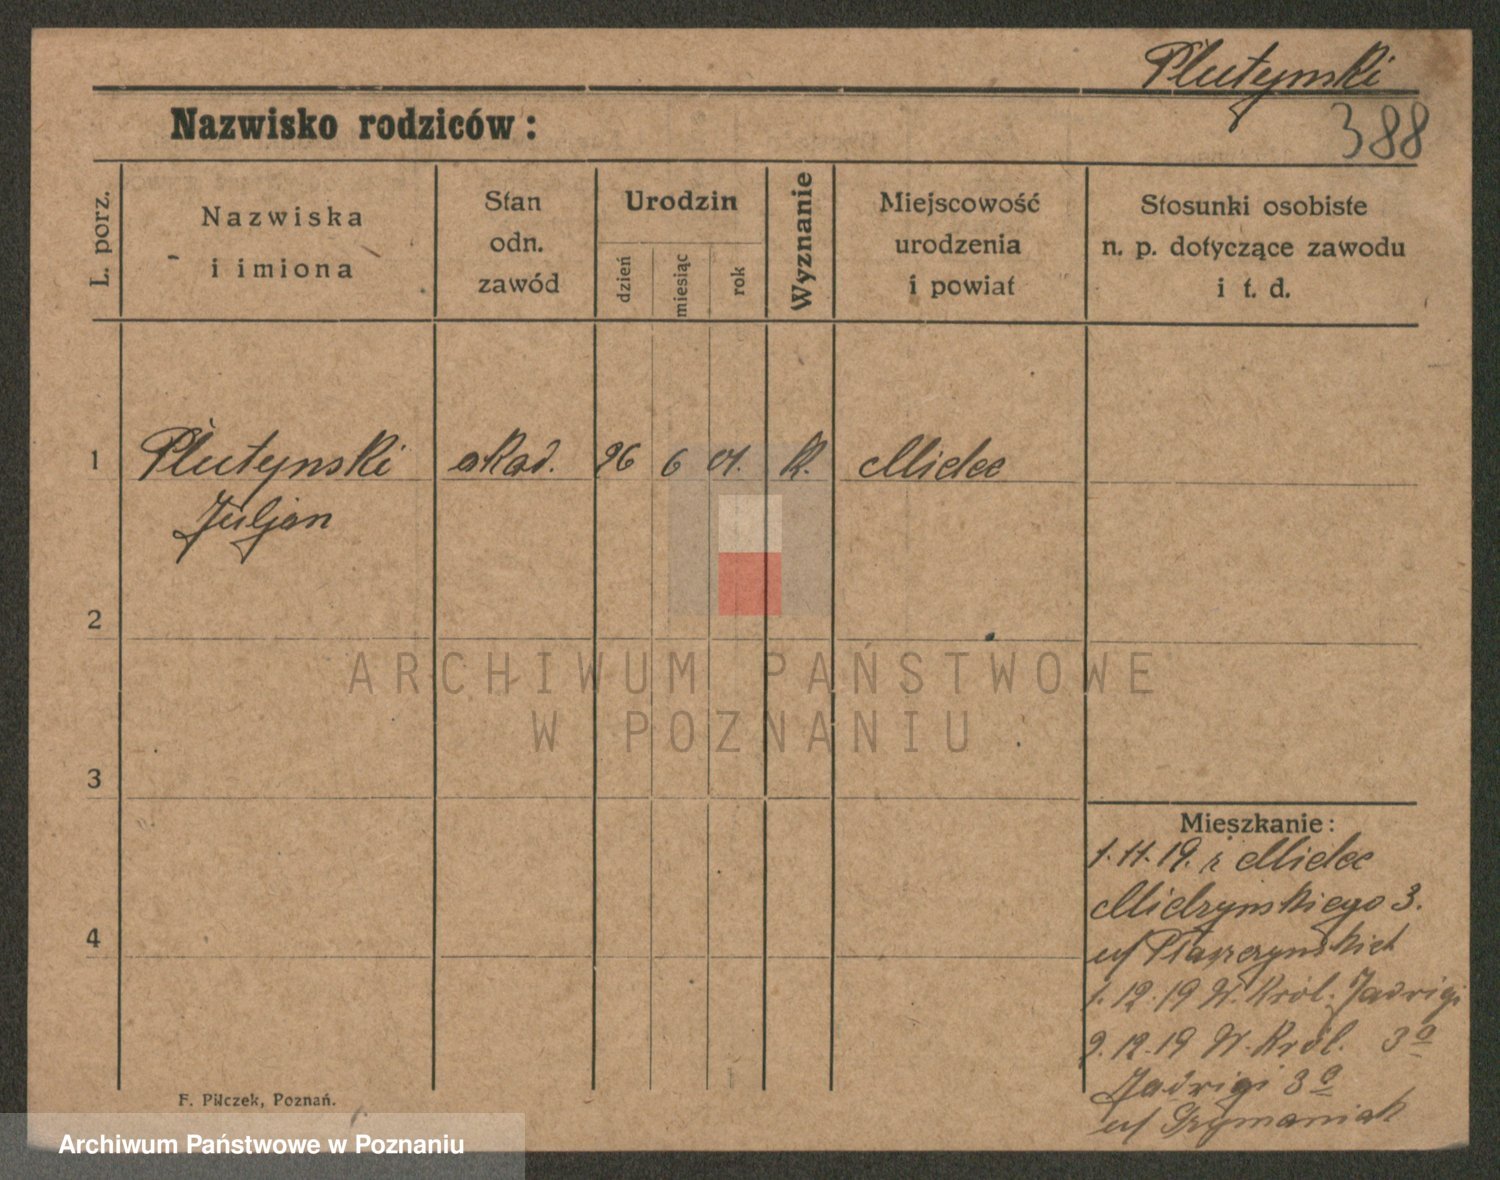 Plutynski
Nazwisko rodziców:
388
L. porz.
Nazwiska
i imiona
Stan
odn.
zawód
Urodzin
dzień
miesiąc
rok
Wyznanie
Miejscowość
urodzenia
i powiat
Stosunki osobiste
n. p. dotyczące zawodu
i t. d.
1 Plutynski akad. 26 6 01. k. Mielec
Juljan
2
ARCHIWUM PAŃSTWOWE
W POZNANIU
3
Mieszkanie:
1.11.19. z Mielec
Mielzynskiego 3.
4
1.12.19 W. Król. Jadwigi
9.12.19 W. Król. 3a
Jadwigi 3a
u/ Szymaniak
F. Pilczek, Poznań.
Archiwum Państwowe w Poznaniu